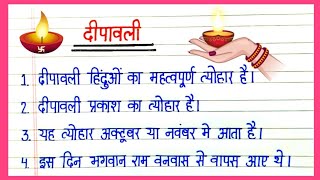 दीपावली
1. दीपावली हिंदुओं का महत्वपूर्ण त्योहार है।
2. दीपावली प्रकाश का त्योहार है।
3. यह त्योहार अक्टूबर या नवंबर मे आता है।
4. इस दिन भगवान राम वनवास से वापस आए थे।